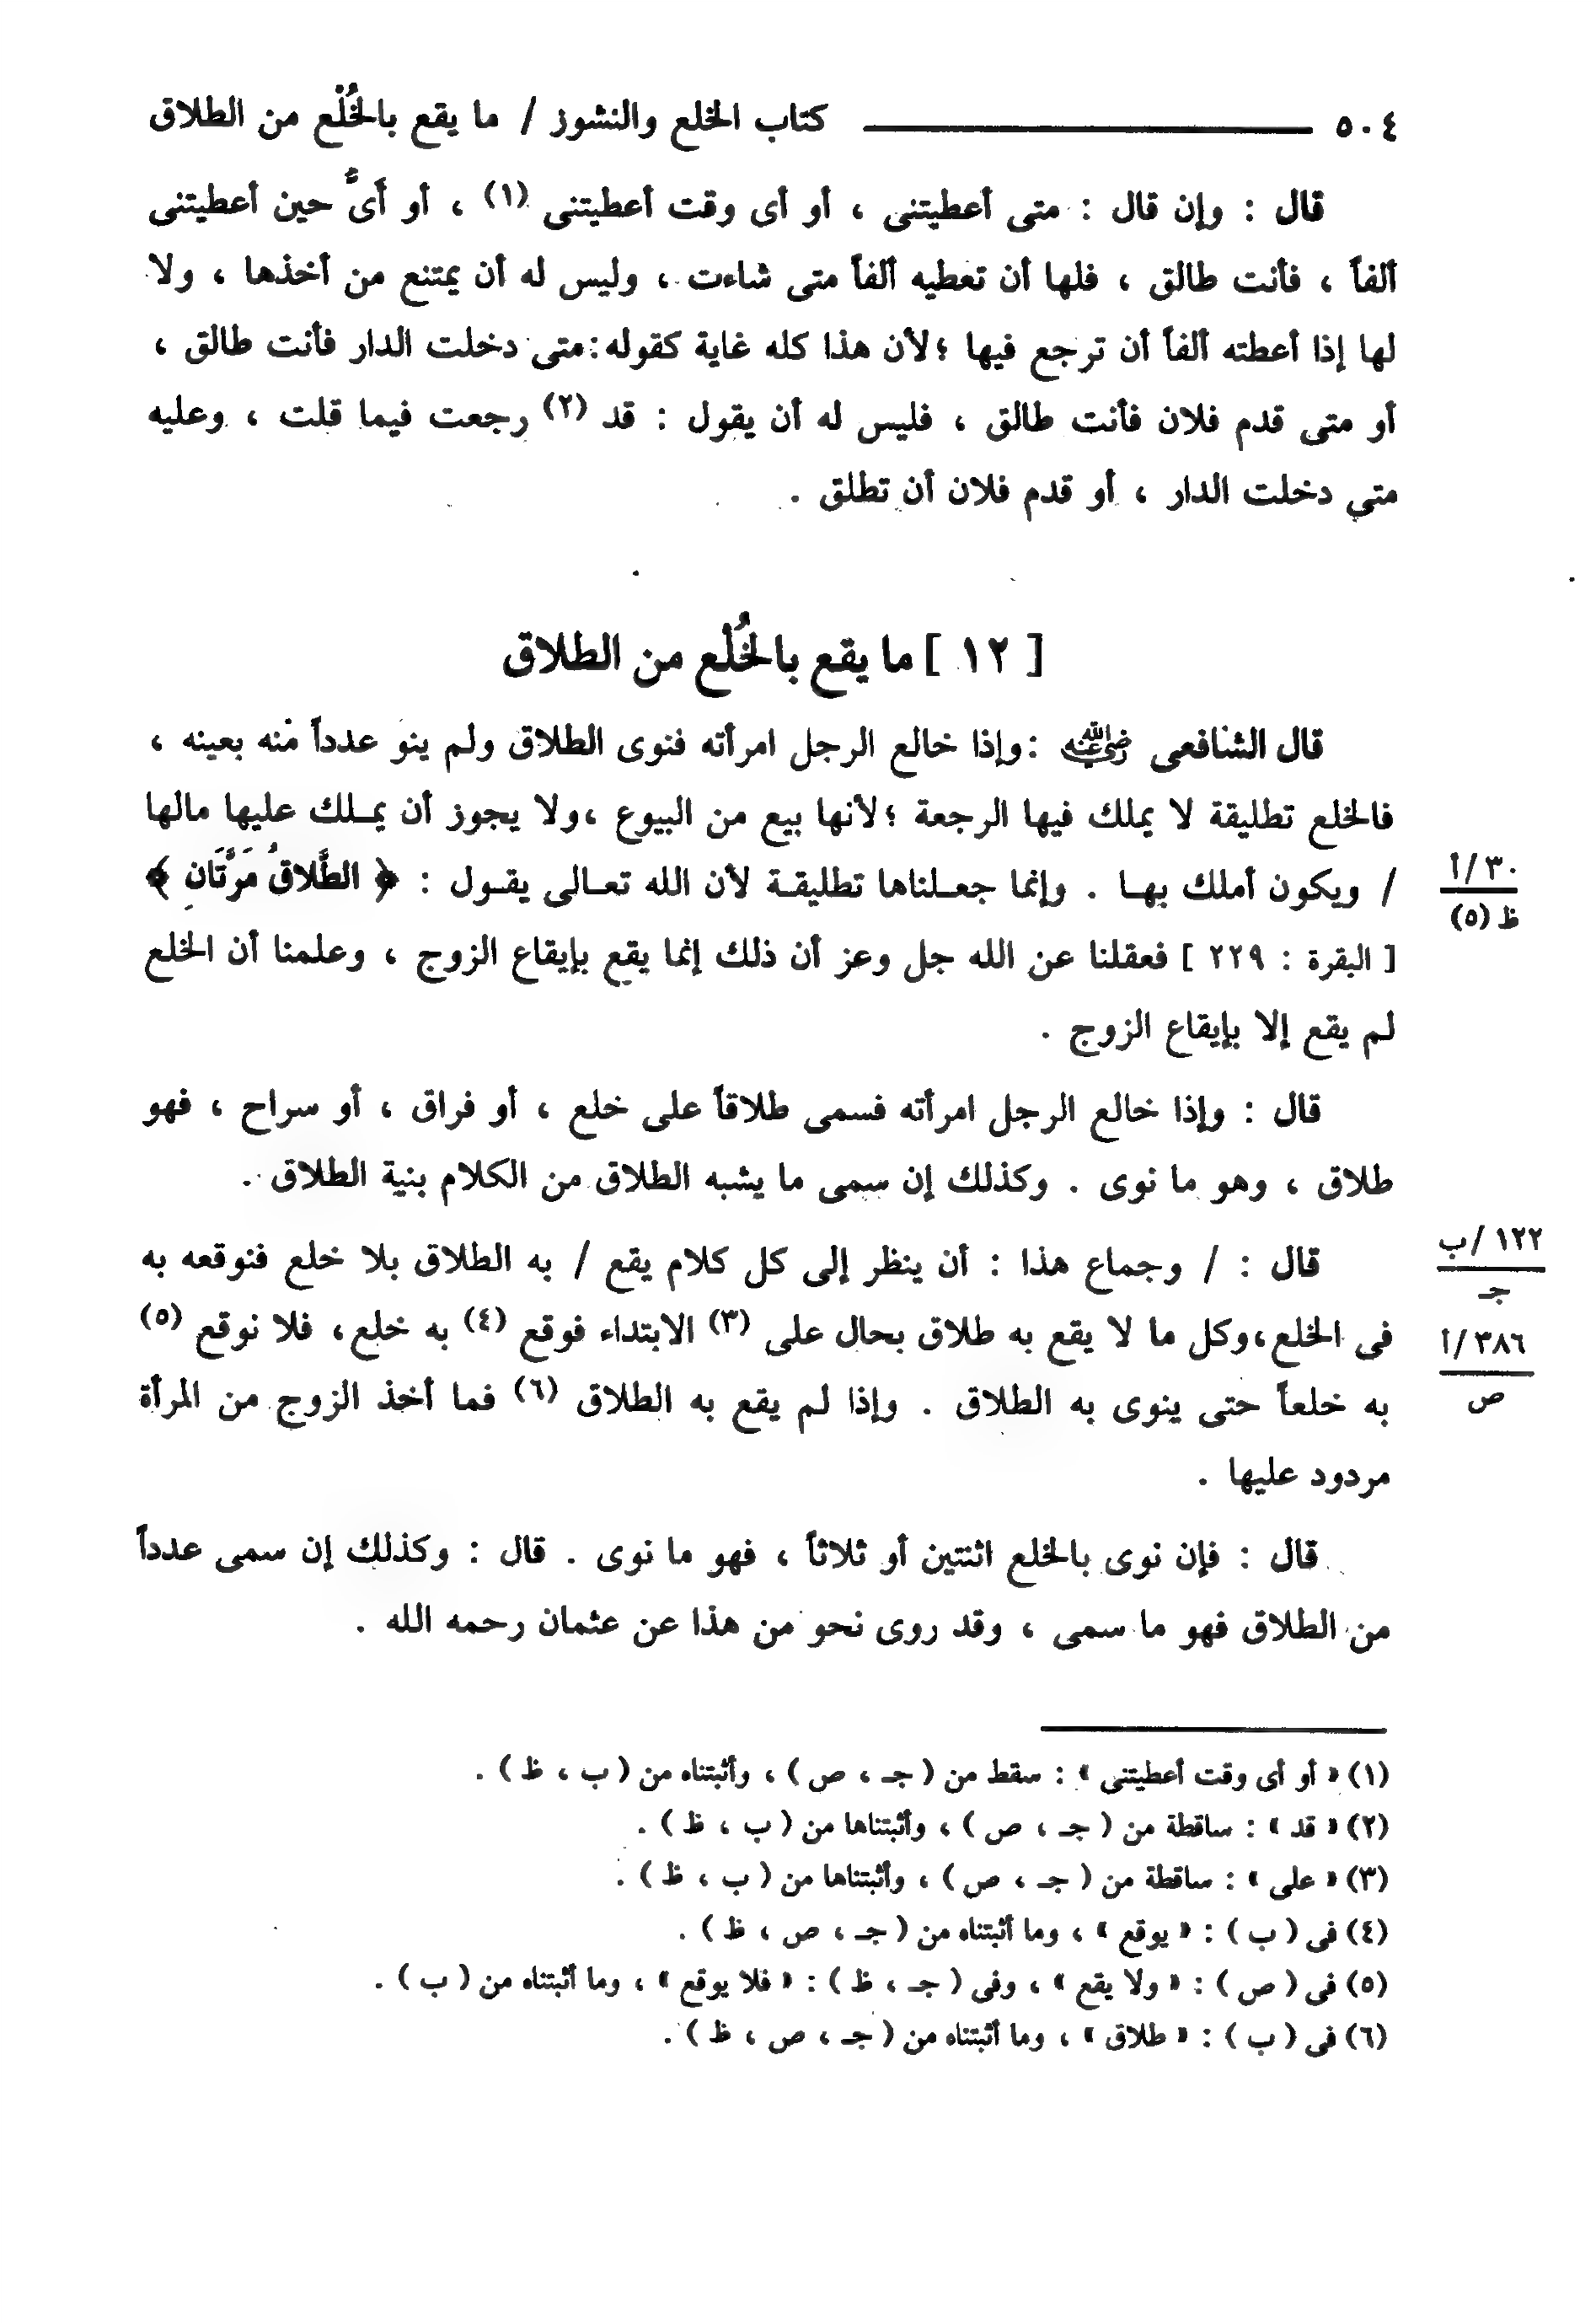 ٥٠٤ كتاب الخلع والنشوز / ما يقع بالخُلْع من الطلاق
قال : وإن قال : متى أعطيتنى ، أو أى وقت أعطيتنى (١) ، أو أىَّ حين أعطيتنى
ألفاً ، فأنت طالق ، فلها أن تعطيه ألفاً متى شاءت ، وليس له أن يمتنع من أخذها ، ولا
لها إذا أعطته ألفاً أن ترجع فيها ؛ لأن هذا كله غاية كقوله: متى دخلت الدار فأنت طالق ،
أو متى قدم فلان فأنت طالق ، فليس له أن يقول : قد (٢) رجعت فيما قلت ، وعليه
متى دخلت الدار ، أو قدم فلان أن تطلق .
[ ١٢ ] ما يقع بالخُلْع من الطلاق
قال الشافعى رضي الله عنه : وإذا خالع الرجل امرأته فنوى الطلاق ولم ينو عدداً منه بعينه ،
فالخلع تطليقة لا يملك فيها الرجعة ؛ لأنها بيع من البيوع ، ولا يجوز أن يمـلك عليها مالها
/ ويكون أملك بهـا . وإنما جعـلناها تطليقـة لأن الله تعـالى يقـول : ﴿ الطَّلاقُ مَرَّتَانِ ﴾
٣٠/أ
ظ (٥)
[ البقرة : ٢٢٩ ] فعقلنا عن الله جل وعز أن ذلك إنما يقع بإيقاع الزوج ، وعلمنا أن الخلع
لم يقع إلا بإيقاع الزوج .
قال : وإذا خالع الرجل امرأته فسمى طلاقاً على خلع ، أو فراق ، أو سراح ، فهو
طلاق ، وهو ما نوى . وكذلك إن سمى ما يشبه الطلاق من الكلام بنية الطلاق .
قال : / وجماع هذا : أن ينظر إلى كل كلام يقع / به الطلاق بلا خلع فنوقعه به
١٢٢/ب
جـ
فى الخلع، وكل ما لا يقع به طلاق بحال على (٣) الابتداء فوقع (٤) به خلع، فلا نوقع (٥)
٣٨٦/أ
ص
به خلعاً حتى ينوى به الطلاق . وإذا لم يقع به الطلاق (٦) فما أخذ الزوج من المرأة
مردود عليها .
قال : فإن نوى بالخلع اثنتين أو ثلاثاً ، فهو ما نوى . قال : وكذلك إن سمى عدداً
من الطلاق فهو ما سمى ، وقد روى نحو من هذا عن عثمان رحمه الله .
(١) « أو أى وقت أعطيتنى » : سقط من ( جـ ، ص ) ، وأثبتناه من ( ب ، ظ ) .
(٢) « قد » : ساقطة من ( جـ ، ص ) ، وأثبتناها من ( ب ، ظ ) .
(٣) « على » : ساقطة من ( جـ ، ص ) ، وأثبتناها من ( ب ، ظ ) .
(٤) فى ( ب ) : « يوقع » ، وما أثبتناه من ( جـ ، ص ، ظ ) .
(٥) فى ( ص ) : « ولا يقع » ، وفى ( جـ ، ظ ) : « فلا يوقع » ، وما أثبتناه من ( ب ) .
(٦) فى ( ب ) : « طلاق » ، وما أثبتناه من ( جـ ، ص ، ظ ) .